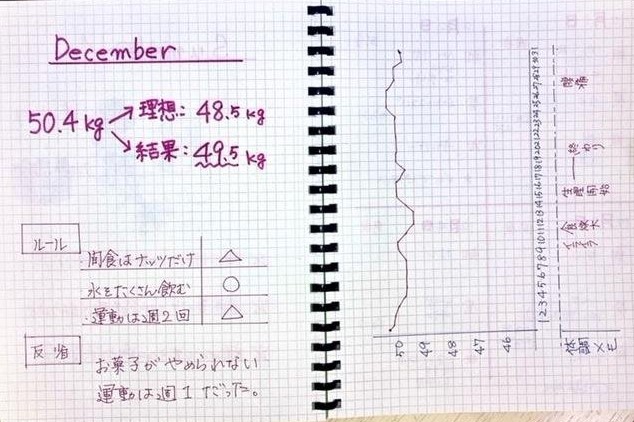 December
50.4kg
理想: 48.5kg
結果: 49.5kg
ルール
・間食はナッツだけ △
水をたくさん飲む ○
・運動は週2回 △
反省
お菓子がやめられない
運動は週1だった。
50 49 48 47 46
1 2 3 4 5 6 7 8 9 10 11 12 13 14 15 16 17 18 19 20 21 22 23 24 25 26 27 28 29 30 31
体調メモ
イライラ
食欲大
生理開始
終わり